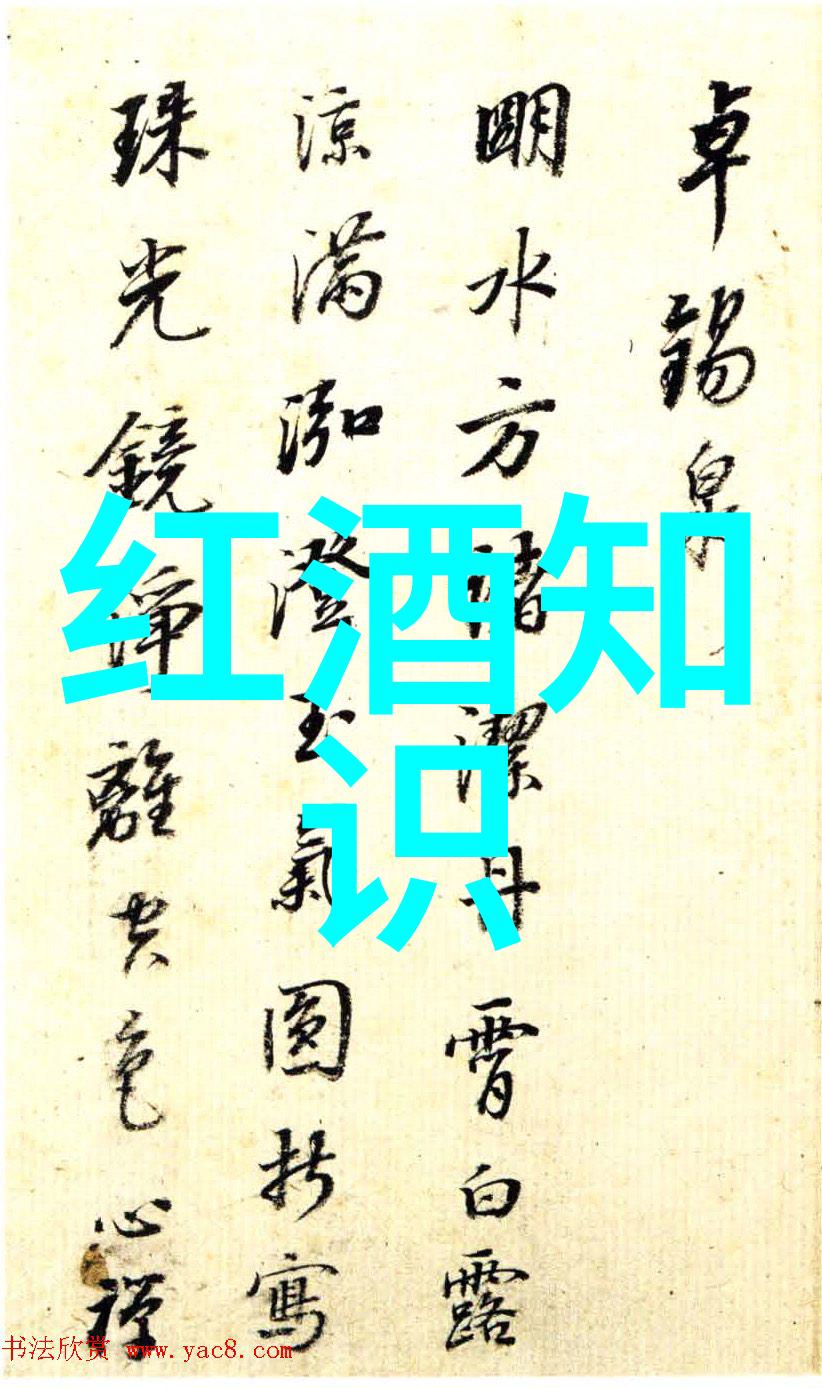 卓錫泉
朙水方諸潔丹霄白露
涼滿泓澄玉氣圓折寫
珠光鏡淨離空色心禪
红酒知
识
书法欣赏 www.yac8.com